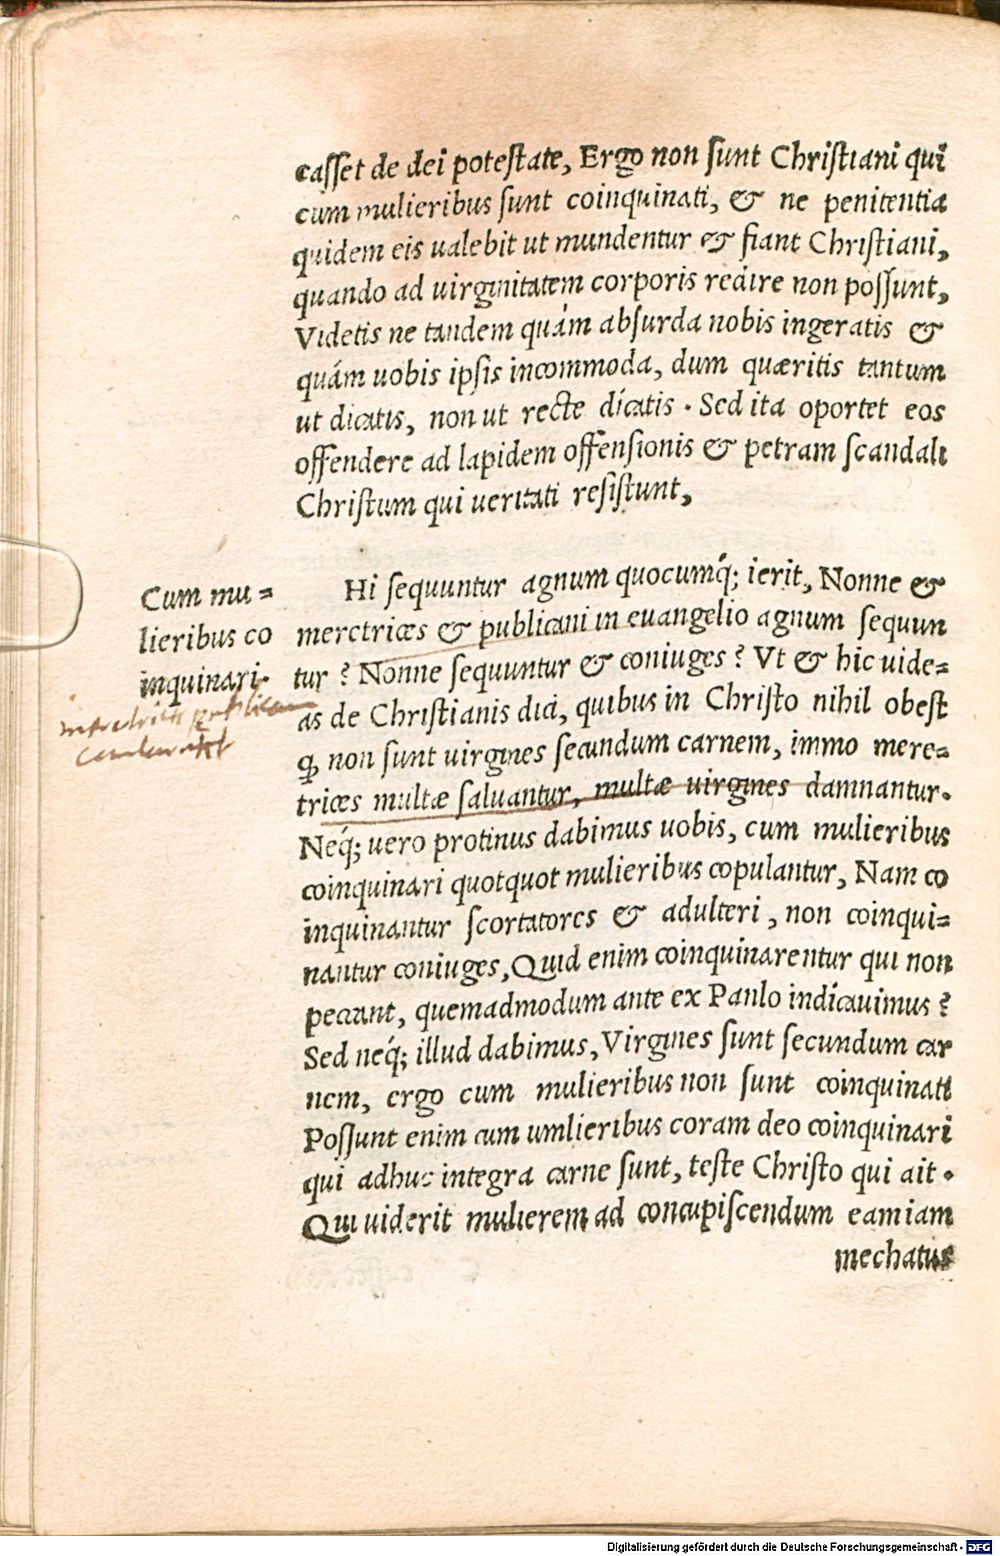 casset de dei potestate, Ergo non sunt Christiani qui
cum mulieribus sunt coinquinati, & ne penitentia
quidem eis ualebit ut mundentur & fiant Christiani,
quando ad uirginitatem corporis redire non possunt,
Videtis ne tandem quám absurda nobis ingeratis &
quám uobis ipsis incommoda, dum quæritis tantum
ut dicatis, non ut recte dicatis. Sed ita oportet eos
offendere ad lapidem offensionis & petram scandali
Christum qui ueritati resistunt,
Cum mu=
lieribus co
inquinari.
Hi sequuntur agnum quocumq́; ierit, Nonne &
meretrices & publicani in euangelio agnum sequun
tur? Nonne sequuntur & coniuges? Vt & hic uide=
as de Christianis dici, quibus in Christo nihil obest
ꝙ non sunt uirgines secundum carnem, immo mere=
trices multæ saluantur, multæ uirgines damnantur.
Neq́; uero protinus dabimus uobis, cum mulieribus
coinquinari quotquot mulieribus copulantur, Nam co
inquinantur scortatores & adulteri, non coinqui=
nantur coniuges, Quid enim coinquinarentur qui non
peccant, quemadmodum ante ex Paulo indicauimus?
Sed neq́; illud dabimus, Virgines sunt secundum car
nem, ergo cum mulieribus non sunt coinquinati
Possunt enim cum umlieribus coram deo coinquinari
qui adhuc integra carne sunt, teste Christo qui ait.
Qui uiderit mulierem ad concupiscendum eam iam
mechatus
Digitalisierung gefördert durch die Deutsche Forschungsgemeinschaft - DFG